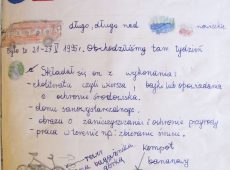 długo, długo nad
Było to 21-23 1995r. Obchodziliśmy tam tydzień
Składał się on z wykonania:
- ekoliteratu czyli wiersza, bajki lub opowiadania
o ochronie środowiska.
- domu samowystarczalnego,
- obrazu o zanieczyszczaniu i ochronie przyrody
- praca w terenie np: zbieranie śmieci.
kompot
bananowy